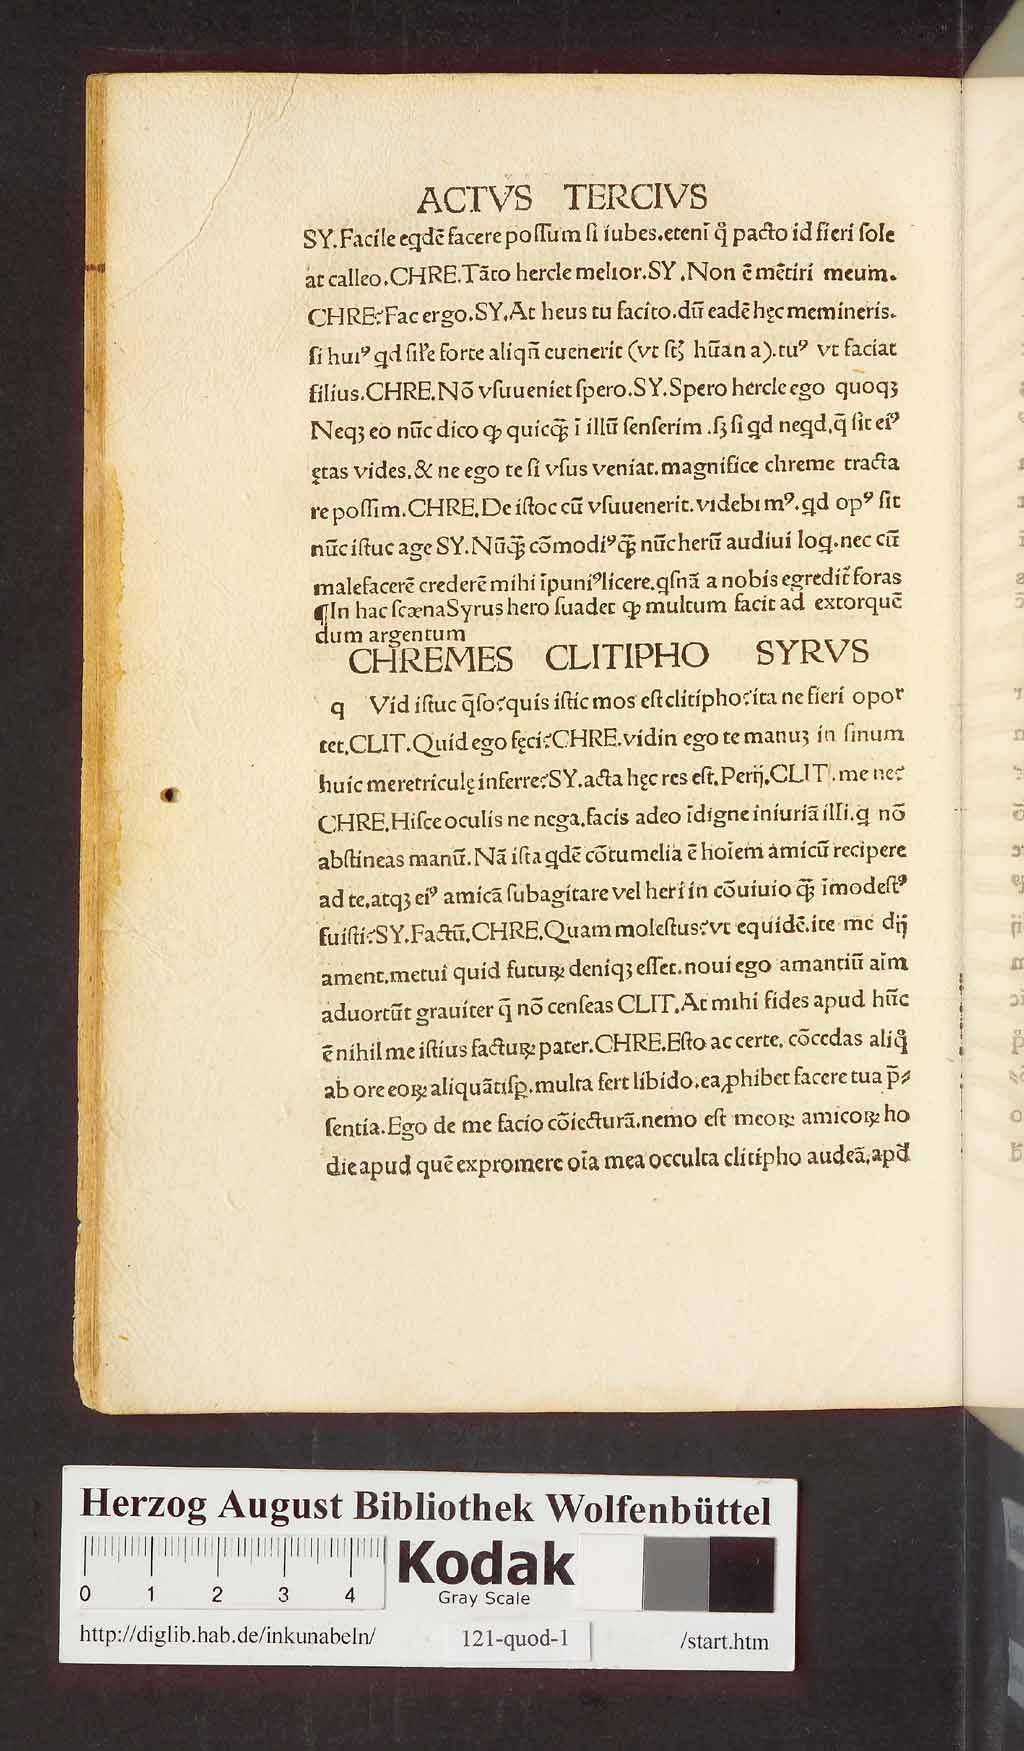 ACTVS TERCIVS
SY.Facile eqdē facere poſſum ſi iubes.etenī q̊ pacto id fieri ſole
at calleo.CHRE.Tāto hercle melior.SY.Non ē mētiri meum.
CHRE:Fac ergo.SY.At heus tu facito.dū eadē hęc memineris.
ſi huiꝰ qd ſiľe forte aliqñ euenerit (vt ſt̄ hūana).tuꝰ vt faciat
filius.CHRE.Nō vſuueniet ſpero.SY.Spero hercle ego quoqꝫ
Neqꝫ eo nūc dico ꝙ quicq̄ꝫ ī illū ſenſerim .ſꝫ ſi qd neqd.q̄ ſit eiꝰ
ętas vides.& ne ego te ſi vſus veniat.magnifice chreme tracta
re poſſim.CHRE.De iſtoc cū vſuuenerit.videbimꝰ.qd opꝰ ſit
nūc iſtuc age SY.Nūq̄ꝫ cōmodiꝰ q̄ꝫ nūc herū audiui loq.nec cū
malefacerē crederē mihi īpuniꝰ licere.qſnā a nobis egredit̄ foras
¶In hac ſcæna Syrus hero ſuadet ꝙ multum facit ad extorquē
dum argentum
CHREMES CLITIPHO SYRVS
q Vid iſtuc q̄ſo:quis iſtic mos eſt clitipho:ita ne fieri opor
tet.CLIT.Quid ego fęci:CHRE.vidin ego te manuꝫ in ſinum
huic meretriculę inferre:SY.acta hęc res eſt.Perij.CLIT.me ne:
CHRE.Hiſce oculis ne nega.facis adeo īdigne iniuriā illi.q nō
abſtineas manū.Nā iſta qdē cōtumelia ē hoīem amicū recipere
ad te.atqꝫ eiꝰ amicā ſubagitare vel heri in cōuiuio q̄ꝫ īmodeſtꝰ
fuiſti:SY.Factū.CHRE.Quam moleſtus:vt equidē.ite me dij
ament.metui quid futuꝝ deniqꝫ eſſet.noui ego amantiū aīm
aduortūt grauiter q̄ nō cenſeas CLIT.At mihi fides apud hūc
ē nihil me iſtius factuꝝ pater.CHRE.Eſto ac certe. cōcedas aliq̊
ab ore eoꝝ aliquātiſꝑ.multa fert libido.ea ꝓhibet facere tua p̄⸗
ſentia.Ego de me facio cōiecturā.nemo eſt meoꝝ amicoꝝ ho
die apud quē expromere oīa mea occulta clitipho audeā.apd̄
Herzog August Bibliothek Wolfenbüttel
0 1 2 3 4
Kodak
Gray Scale
http://diglib.hab.de/inkunabeln/ 121-quod-1 /start.htm